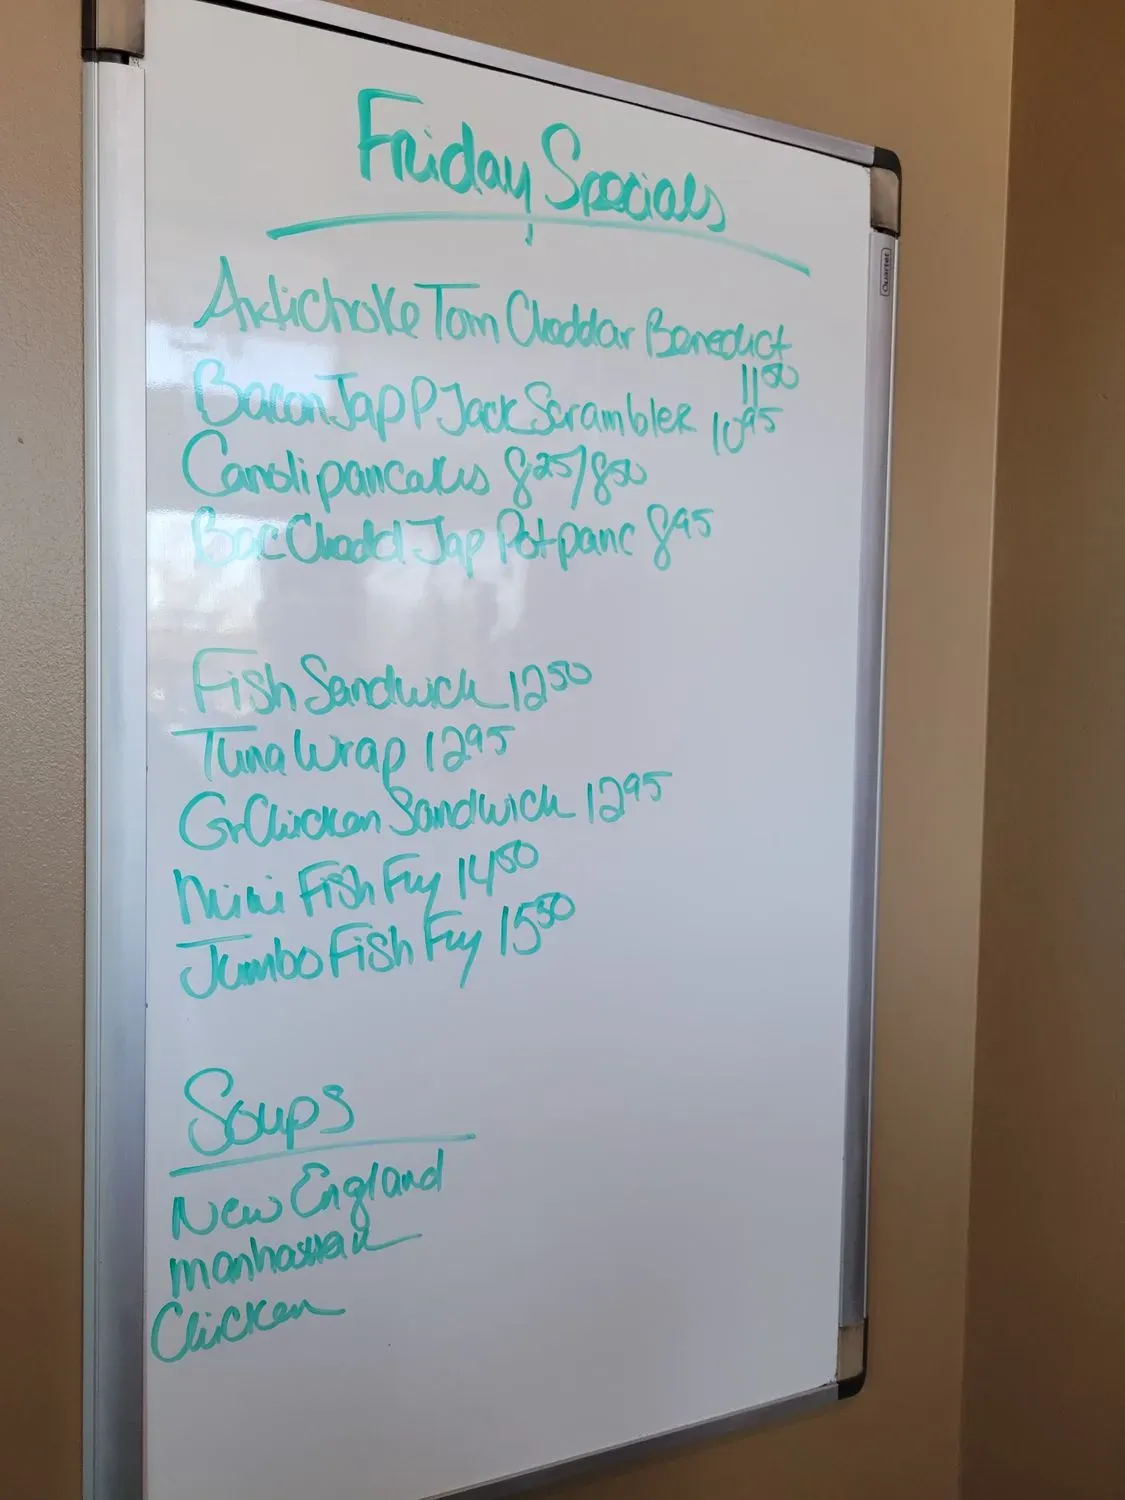 Friday Specials
Artichoke Tom Cheddar Benedict
1150
Bacon Jap P Jack Scrambler 1095
Canoli pancakes 825/850
Bac Chedd Jap Pot panc 895
Fish Sandwich 1250
Tuna Wrap 1295
Gr Chicken Sandwich 1295
Mini Fish Fry 1450
Jumbo Fish Fry 1550
Soups
New England
manhattan
Chicken
Quartet